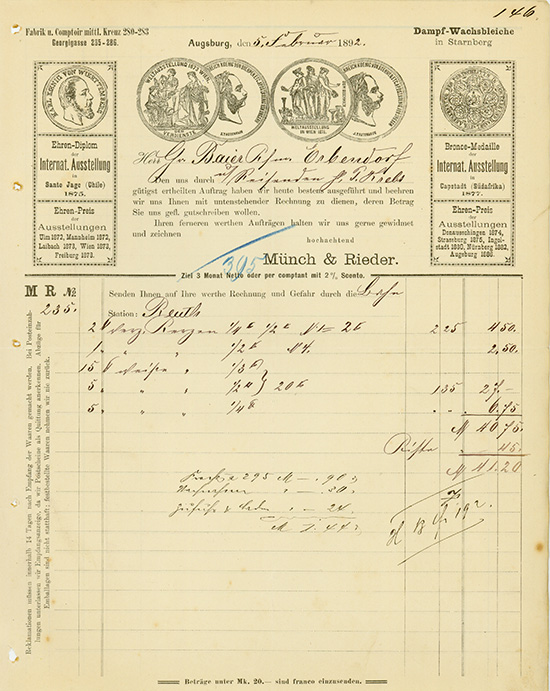 146
Fabrik u. Comptoir mittl. Kreuz 280-283
Georgigasse 235-236.
Dampf-Wachsbleiche
in Starnberg
Augsburg, den 5. Februar 1892.
KARL KOENIG VON WUERTTEMBERG
WELTAUSSTELLUNG 1873 WIEN
DEM VERDIENSTE
WELTAUSSTELLUNG
Ehren-Diplom
der
Internat. Ausstellung
in
Santo Jago (Chile)
1875.
Ehren-Preis
der
Ausstellungen
Ulm 1872, Mannheim 1872,
Laibach 1873, Wien 1873,
Freiburg 1873.
Bronce-Medaille
der
Internat. Ausstellung
in
Capstadt (Südafrika)
1877.
Ehren-Preis
der
Ausstellungen
Donaueschingen 1874,
Strassburg 1875, Ingol-
stadt 1880, Nürnberg 1882,
Augsburg 1886.
Herr Gr. Baier Erbendorf
Den uns durch Reisenden Krebs
gütigst ertheilten Auftrag haben wir heute bestens ausgeführt und beehren
wir uns Ihnen mit untenstehender Rechnung zu dienen, deren Betrag
Sie uns gefl. gutschreiben wollen.
Ihren ferneren werthen Aufträgen halten wir uns gerne gewidmet
und zeichnen
hochachtend
Münch & Rieder.
395
Ziel 3 Monat Netto oder per comptant mit 2% Sconto.
M R № 235.
Senden Ihnen auf Ihre werthe Rechnung und Gefahr durch die Bahn
Station: Reuth
2 verz. Kerzen 1/4 1/2 № 1= 26 225 4.50.
1 " " 1/2 № 4. 2.50.
15 weiße " 1/3
5 " " 1/2 20 135 27.-
5 " " 1/4 " " 6.75
M 40.75.
Kiste " 45.
M 41.20
295 M -. 90
Nachnahme " -. 30.
" -. 24.
M 1.44
Reklamationen müssen innerhalb 14 Tagen nach Empfang der Waaren gemacht werden. Bei Posteinzah-
lungen unterlassen wir Empfangsanzeige, da wir Postscheine als Quittung anerkennen. Abzüge für
Emballagen sind nicht statthaft; festbestellte Waaren nehmen wir nie zurück.
Beträge unter Mk. 20.— sind franco einzusenden.